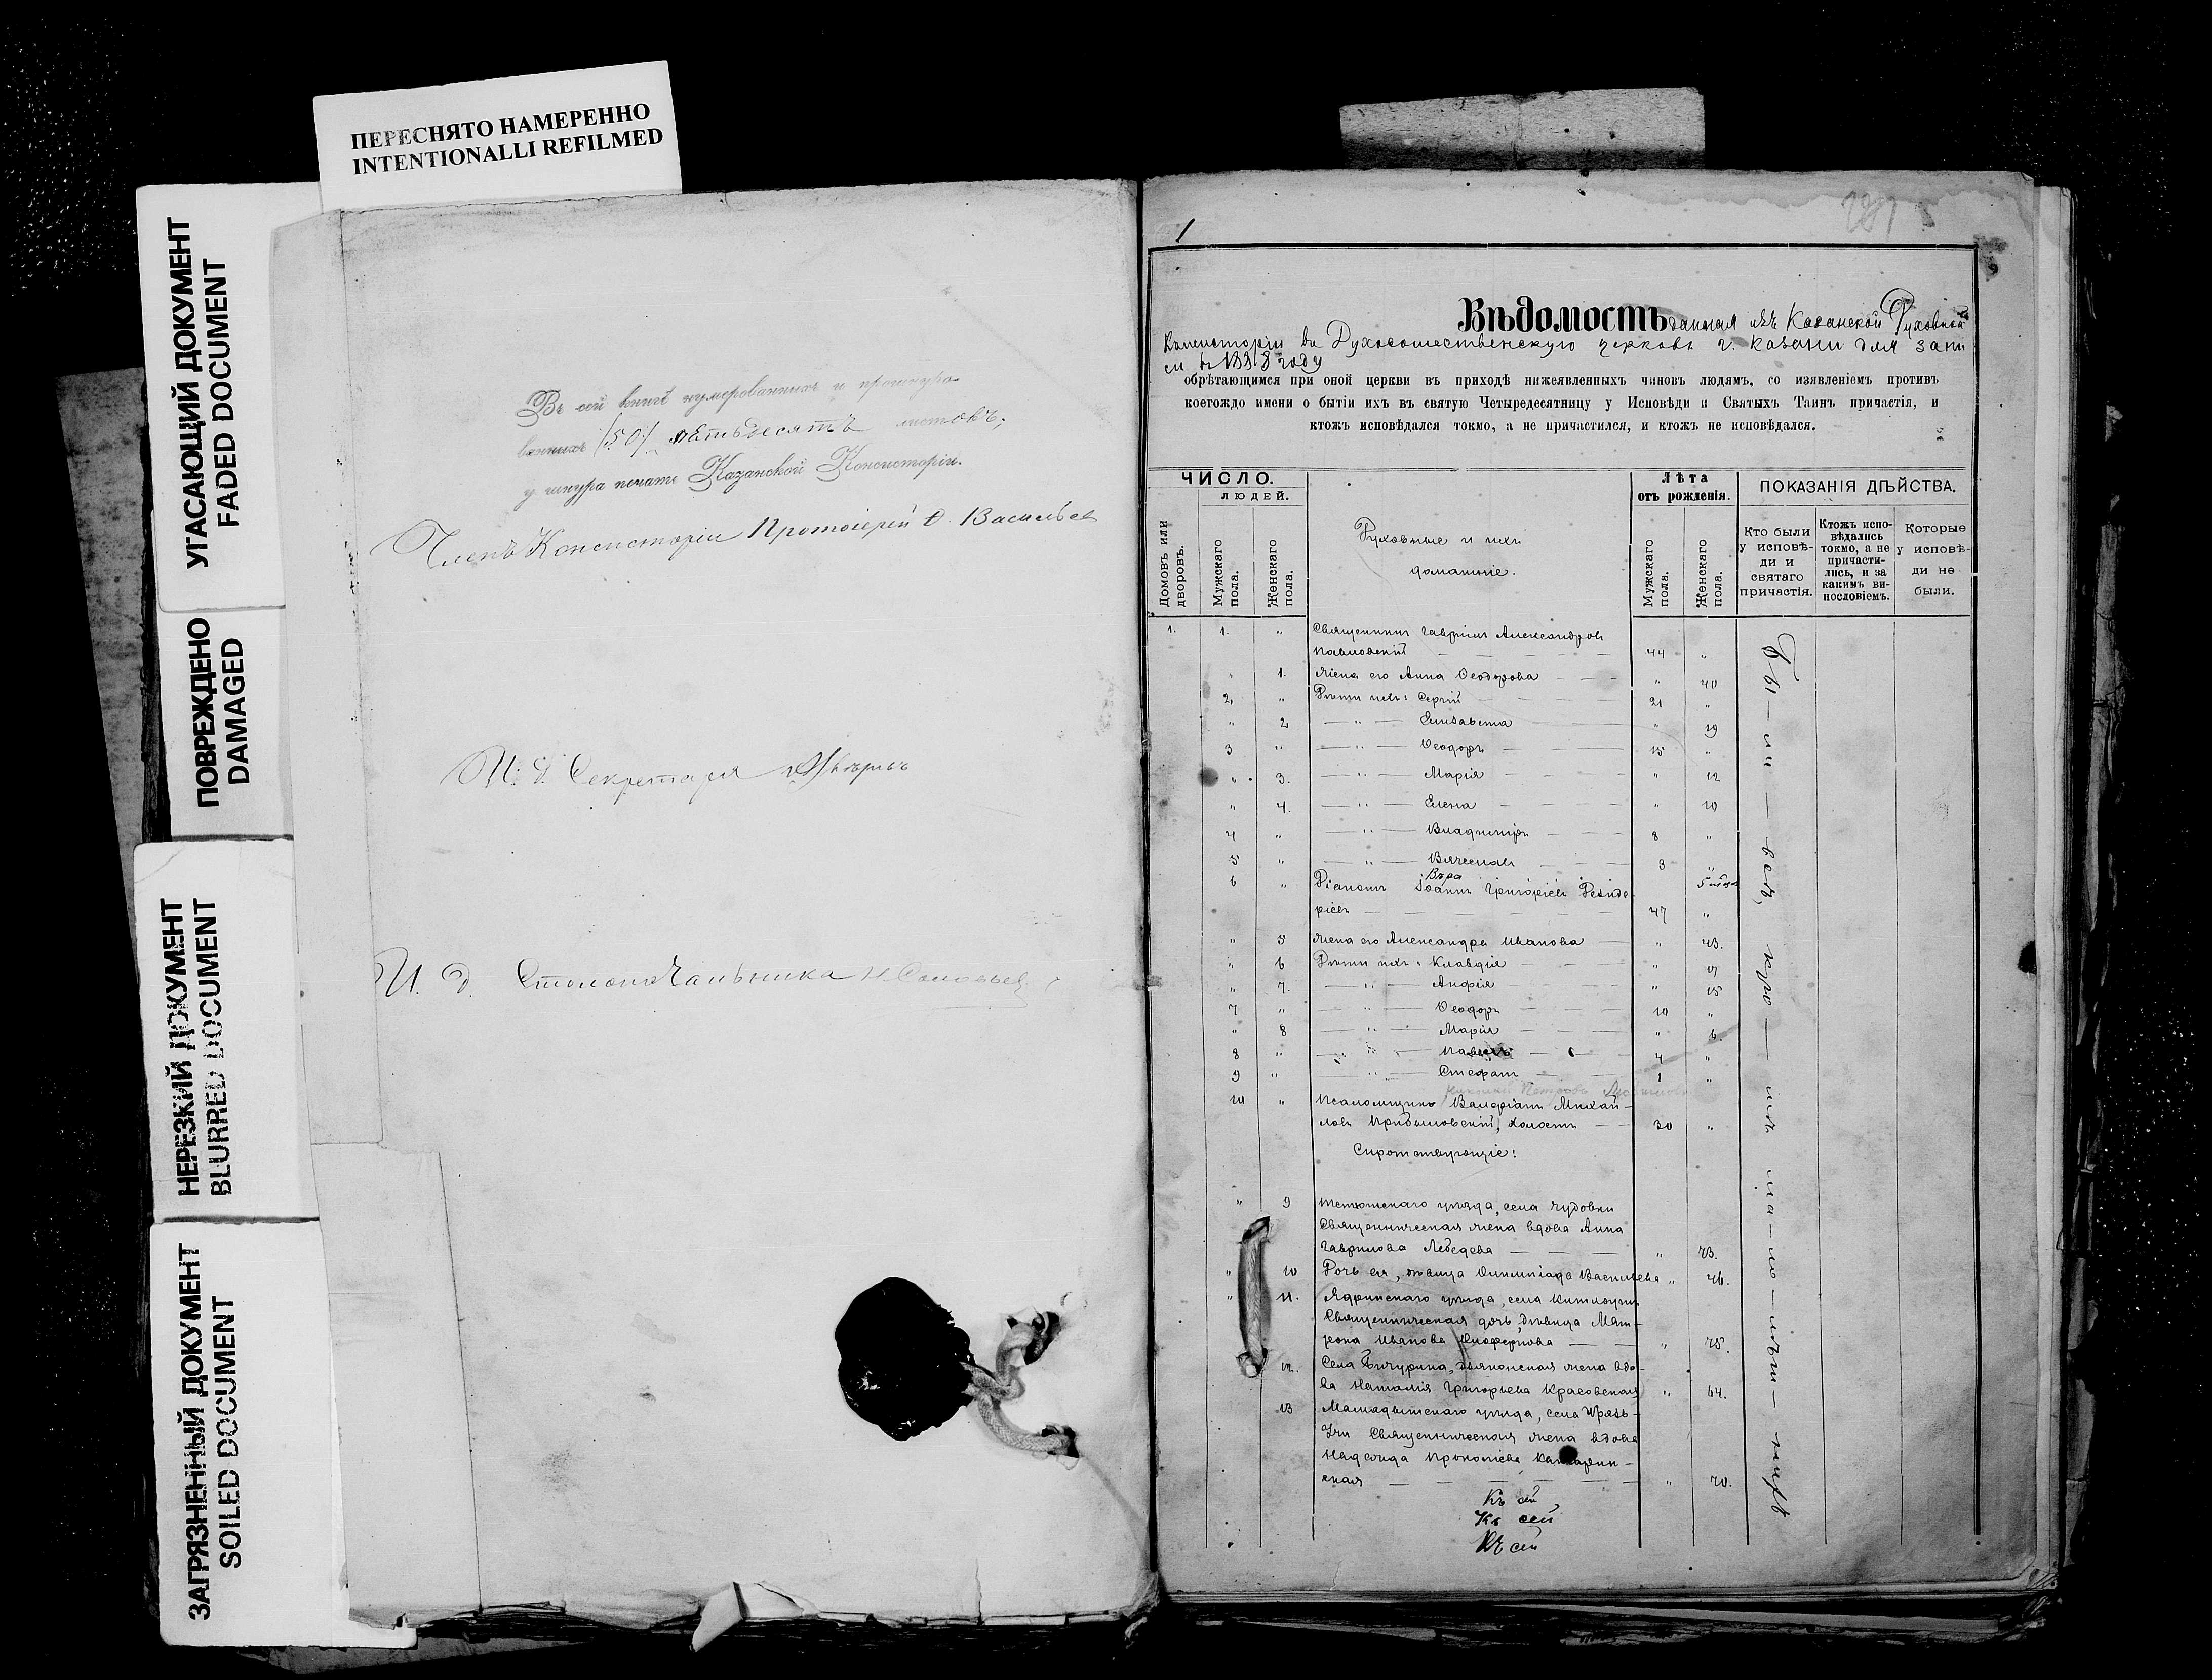 ПЕРЕСНЯТО НАМЕРЕННО
INTENTIONALLI REFILMED
УГАСАЮЩИЙ ДОКУМЕНТ
FADED DOCUMENT
ПОВРЕЖДЕНО
DAMAGED
НЕРЕЗКИЙ ДОКУМЕНТ
BLURRED DOCUMENT
ЗАГРЯЗНЕННЫЙ ДОКУМЕНТ
SOILED DOCUMENT
Въ сей книгѣ нумерованныхъ и прошнуро-
ванныхъ (50) пятьдесятъ листовъ;
у шнура печать Казанской Консисторіи.
Членъ Консисторіи Протоіерей Ѳ. Васильев
И. д. Секретаря
И. д. Столоначальника Н. Соловьев
1
Вѣдомость данная изъ Казанской Духовной
Консисторіи въ Духосошественскую церковь г. Казани для запи
си въ 1888 году
обрѣтающимся при оной церкви въ приходѣ нижеявленныхъ чиновъ людямъ, со изявленіемъ противъ
коегождо имени о бытіи ихъ въ святую Четыредесятницу у Исповѣди и Святыхъ Таинъ причастія, и
ктожъ исповѣдался токмо, а не причастился, и ктожъ не исповѣдался.
ЧИСЛО.
ЛЮДЕЙ.
Домовъ или дворовъ.
Мужскаго пола.
Женскаго пола.
Духовные и ихъ
домашніе.
Лѣта
отъ рожденія.
Мужскаго пола.
Женскаго пола.
ПОКАЗАНІЯ ДѢЙСТВА.
Кто были у исповѣ-ди и святаго причастія.
Ктожъ испо-вѣдались токмо, а не причасти-лись, и за какимъ ви-нословіемъ.
Которые у исповѣ-ди не были.
1. 1. " Священникъ Гавріилъ Александровъ
Павловскій — 44 "
" 1. Жена его Анна Ѳеодорова — " 40
2, " Дѣти ихъ: Сергій — 21 "
" 2 — " — Елизавета — " 19
3 " — " — Ѳеодоръ — 15 "
" 3. — " — Марія — " 12
" 4. — " — Елена — " 10
4 " — " — Владиміръ — 8 "
5 " — " — Вячеславъ — 3 "
Вѣра
6 " Діаконъ Іоаннъ Григоріевъ Дезиде-
ріевъ — 47 "
" 5 Жена его Александра Иванова — " 43.
" 6 Дѣти ихъ: Клавдія — "
" 7. — " — Анфія — " 15
7 " — " — Ѳеодоръ — 10 "
" 8 — " — Марія — " 6
8 " — " — Павелъ — 4 "
9 " — " — Стефанъ — 1 "
10 " Псаломщикъ Валеріанъ Михай-
ловъ Прибыловскій, холостъ — 30 "
Сиротствующіе:
" 9 Тетюшскаго уѣзда, села Чудовки
Священническая жена вдова Анна
Гаврилова Лебедева — " 73.
" 10 Дочь ея, дѣвица Олимпіада Васильева " 46.
" 11. Ядринскаго уѣзда, села
Священническая дочь, дѣвица Мат-
рона Иванова — " 75.
12. Села Бичурина, дьяконская жена вдо-
ва Наталія Григорьева Красовская " 64.
13 Мамадышскаго уѣзда, села
Священническая жена вдова
Надежда Прокопіева
ская — " 70.
Къ сей
Къ сей
Къ сей
Бы — ли — всѣ, кро — мѣ ма — ло — лѣт —